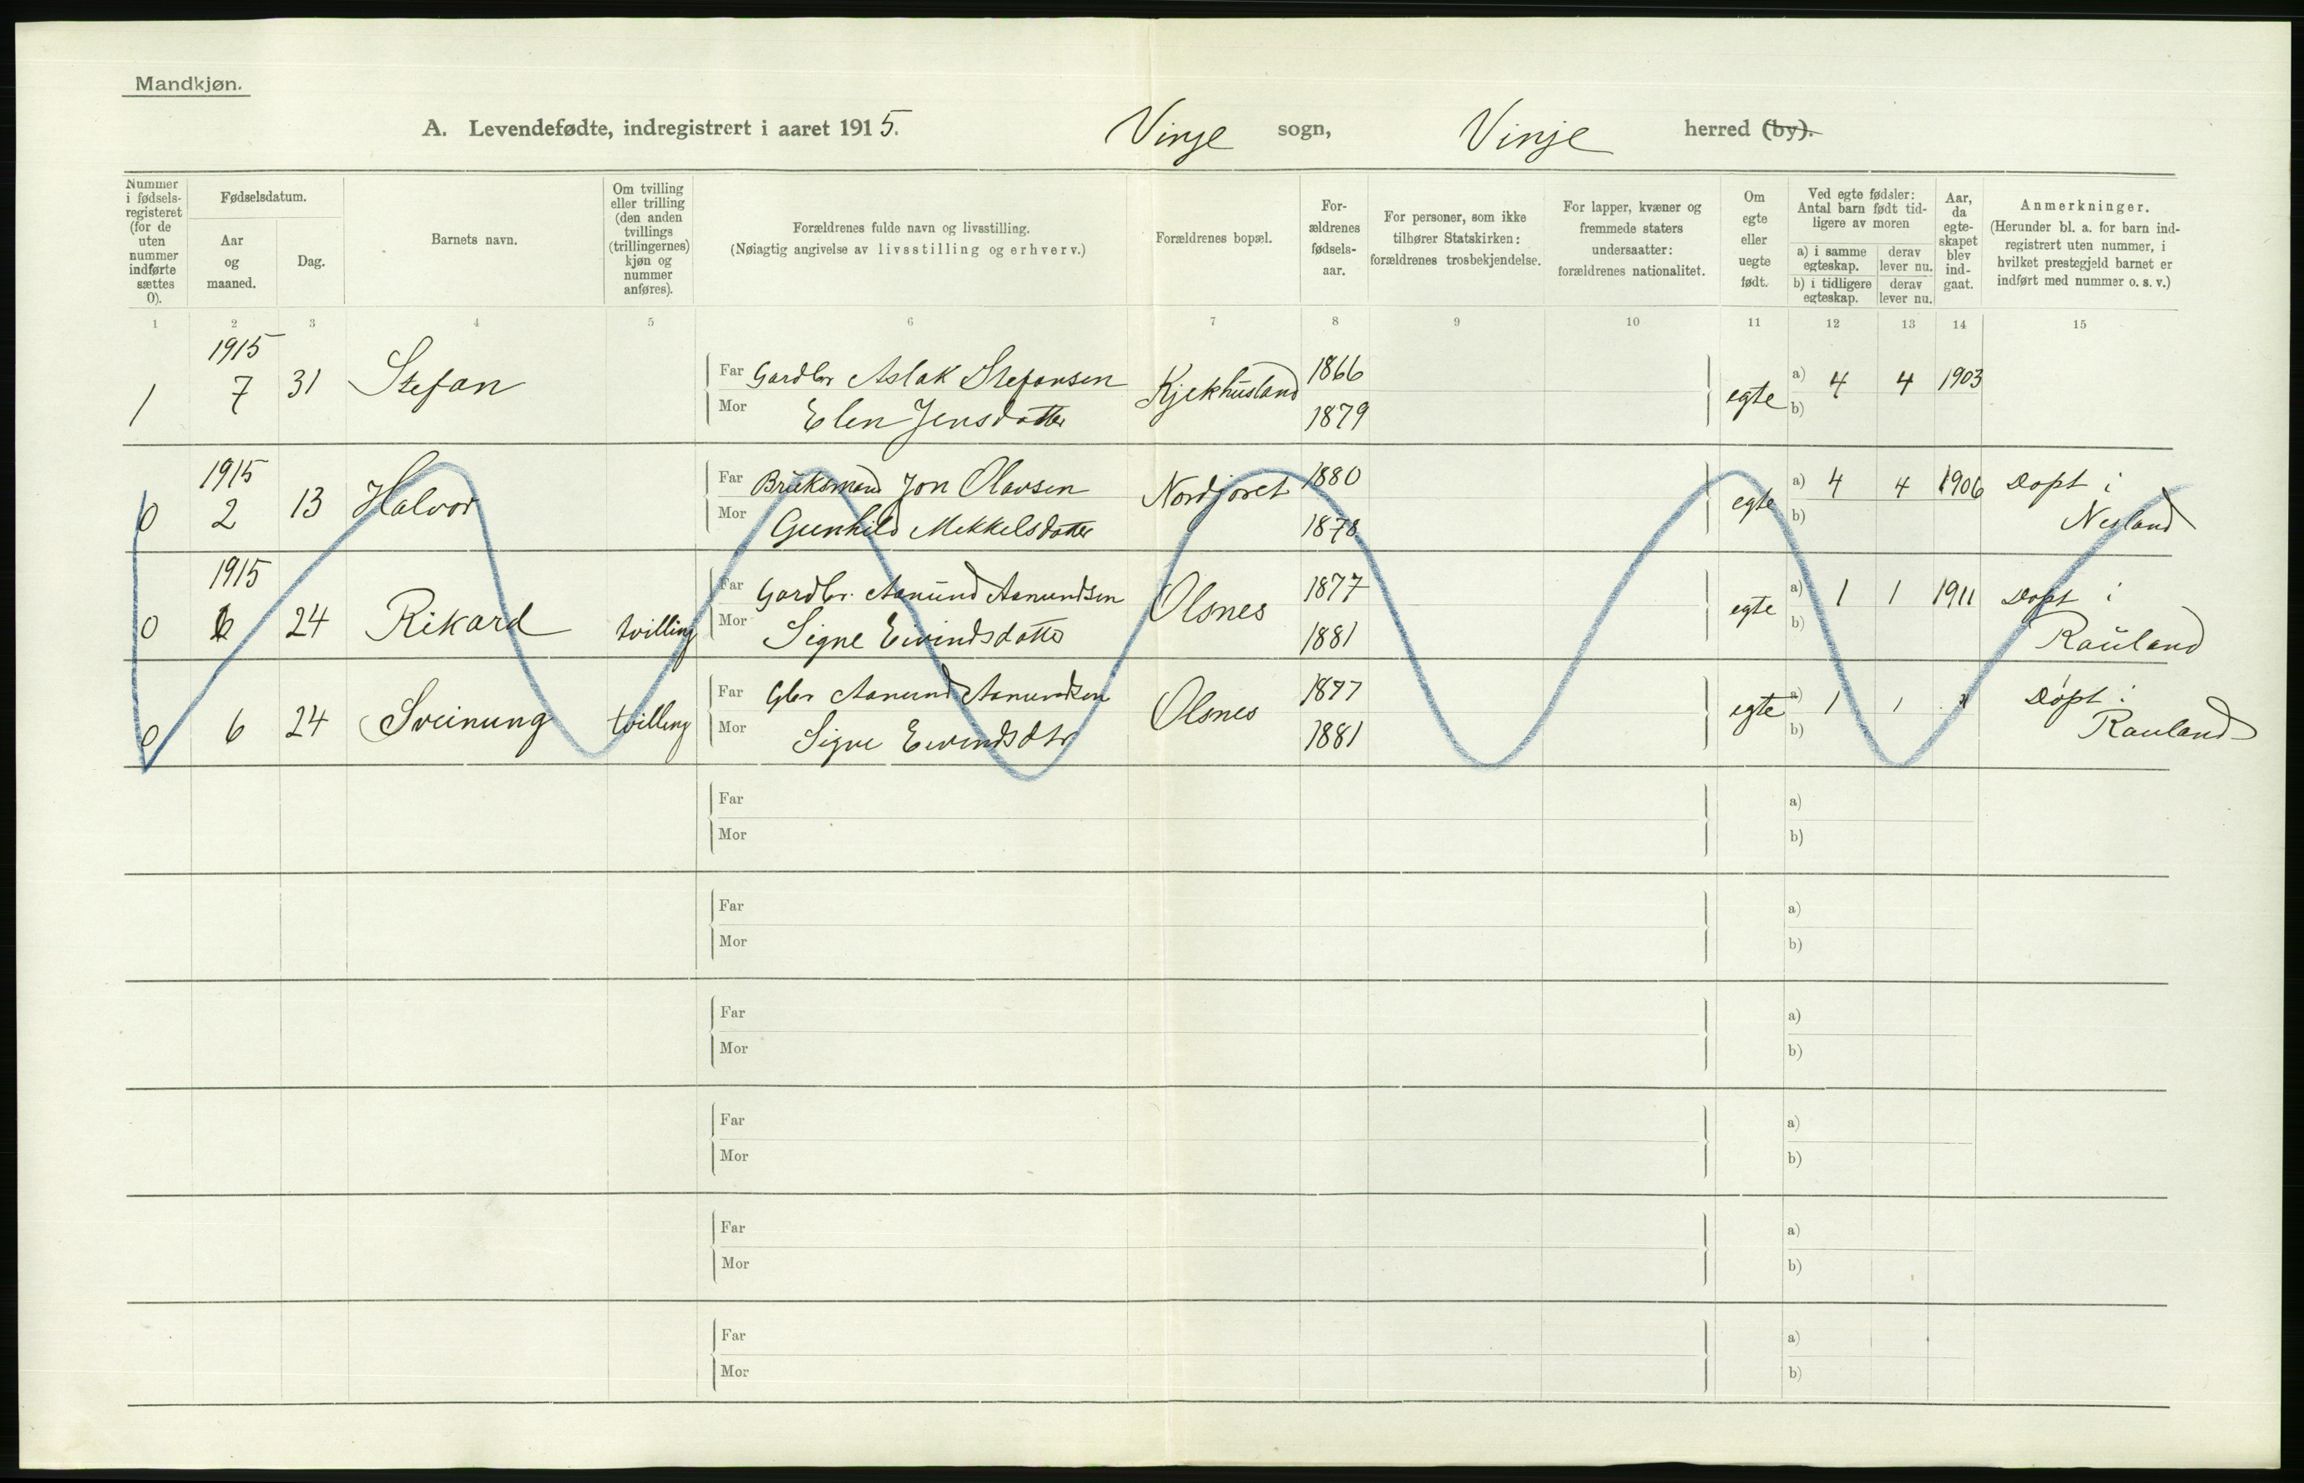 Mandkjøn.
A. Levendefødte, indregistrert i aaret 1915. Vinje sogn, Vinje herred (by).
Nummer i fødsels-registeret (for de uten nummer indførte sættes 0).
Fødselsdatum.
Aar og maaned.
Dag.
Barnets navn.
Om tvilling eller trilling (den anden tvillings (trillingernes) kjøn og nummer anføres).
Forældrenes fulde navn og livsstilling.
(Nøiagtig angivelse av livsstilling og erhverv.)
Forældrenes bopæl.
For-ældrenes fødsels-aar.
For personer, som ikke tilhører Statskirken: forældrenes trosbekjendelse.
For lapper, kvæner og fremmede staters undersaatter: forældrenes nationalitet.
Om egte eller uegte født.
Ved egte fødsler: Antal barn født tid-ligere av moren
a) i samme egteskap.
derav lever nu.
b) i tidligere egteskap.
derav lever nu.
Aar, da egte-skapet blev ind-gaat.
Anmerkninger.
(Herunder bl. a. for barn ind-registrert uten nummer, i hvilket prestegjeld barnet er indført med nummer o. s. v.)
1 2 3 4 5 6 7 8 9 10 11 12 13 14 15
1915
1 7 31 Stefan Far Gardbr Aslak Stefansen Kjekhusland 1866 egte a) 4 4 1903
Mor Elen Jensdatter 1879 b)
1915
0 2 13 Halvor Far Bruksmand Jon Olavsen Nordjoret 1880 egte a) 4 4 1906 Døpt i
Mor Gunhild Mekkelsdatter 1878 b) Nesland
1915
0 6 24 Rikard tvilling Far Gardbr. Aamund Aamundsen Olsnes 1877 egte a) 1 1 1911 Døpt i
Mor Signe Eivindsdatter 1881 b) Rauland
0 6 24 Sveinung tvilling Far Gbr Aamund Aamundsen Olsnes 1877 egte a) 1 1 Døpt i
Mor Signe Eivindsdtr 1881 b) Rauland
Far a)
Mor b)
Far a)
Mor b)
Far a)
Mor b)
Far a)
Mor b)
Far a)
Mor b)
Far a)
Mor b)